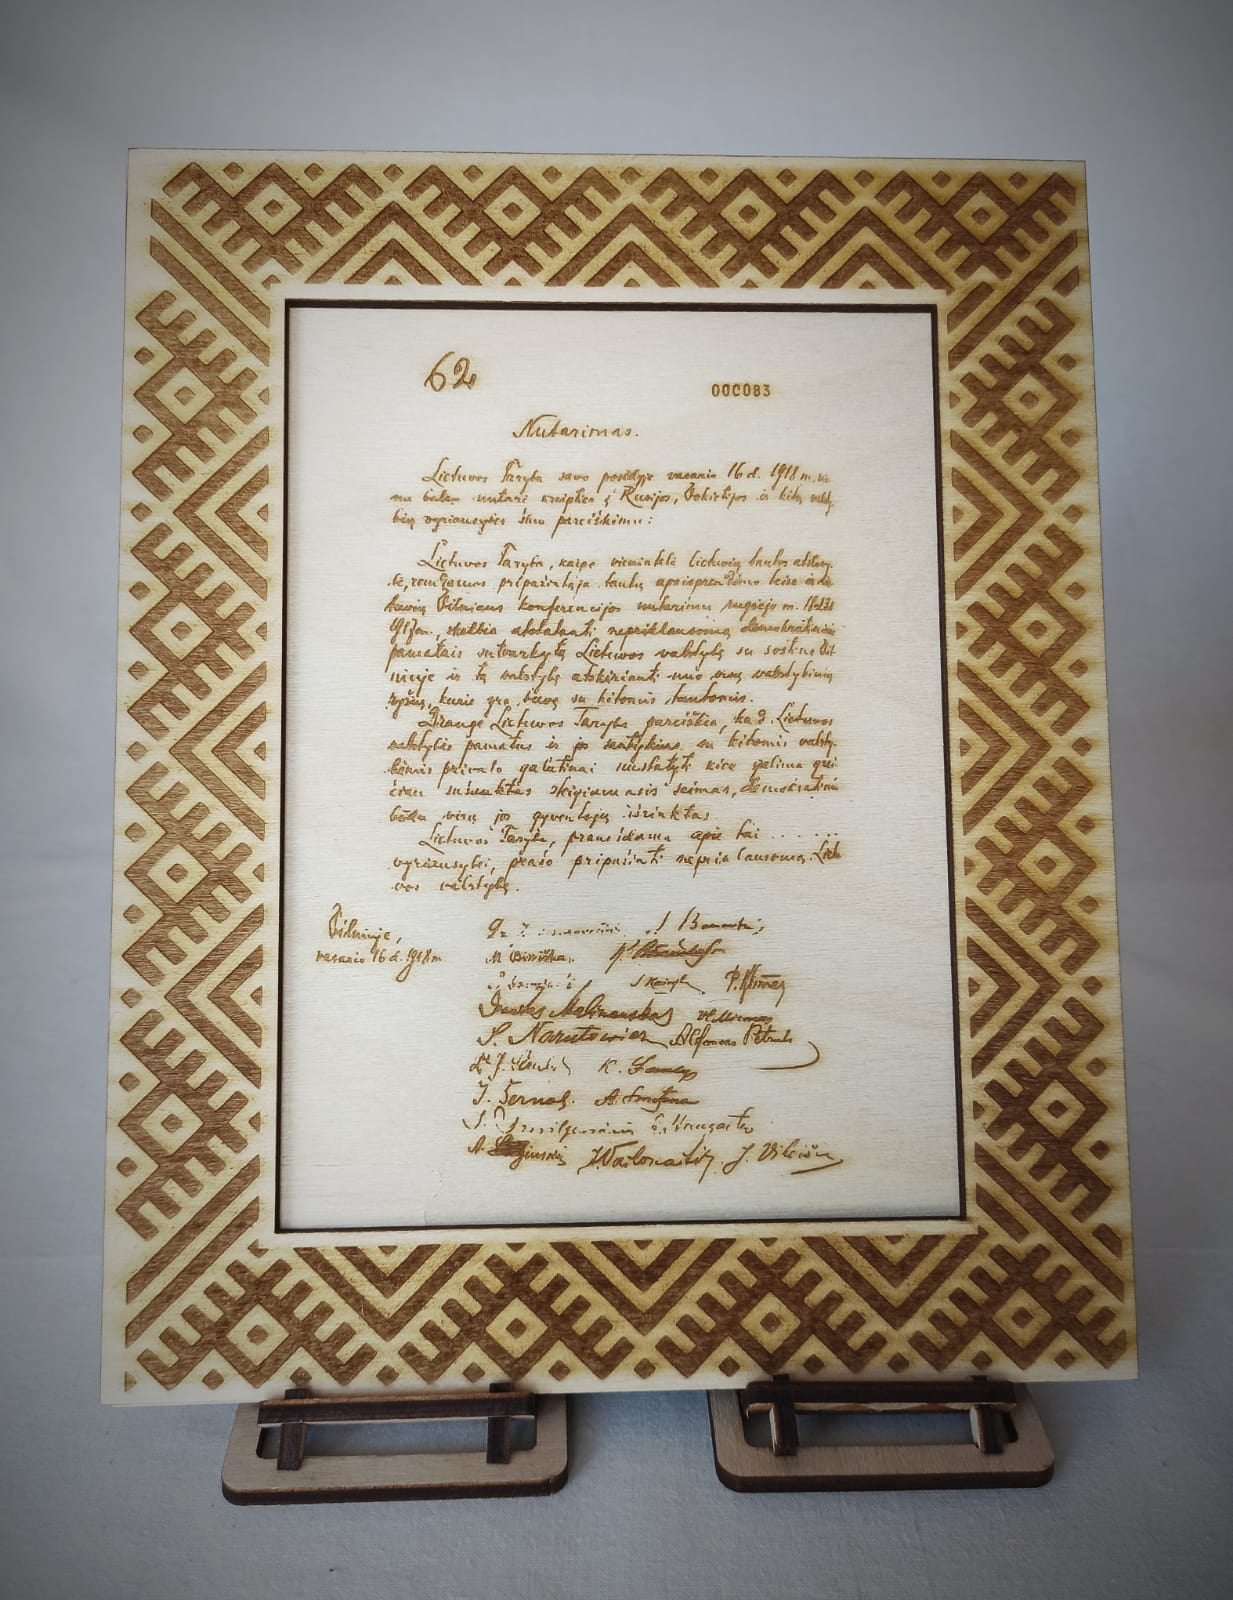 62
000083
Nutarimas.
Lietuvos Taryba savo posėdyje vasario 16 d. 1918 m. vie-
nu balsu nutarė kreipties į Rusijos, Vokietijos ir kitų valsty-
bių vyriausybes šiuo pareiškimu:
Lietuvos Taryba, kaipo vienintelė lietuvių tautos atstovy-
bė, remdamos pripažintąja tautų apsisprendimo teise ir lie-
tuvių Vilniaus konferencijos nutarimu rugsėjo m. 18-23 d.
1917 m., skelbia atstatanti nepriklausomą demokratiniais
pamatais sutvarkytą Lietuvos valstybę su sostine Vil-
niuje ir tą valstybę atskirianti nuo visų valstybinių
ryšių, kurie yra buvę su kitomis tautomis.
Drauge Lietuvos Taryba pareiškia, kad Lietuvos
valstybės pamatus ir jos santykius su kitomis valsty-
bėmis privalo galutinai nustatyti kiek galima grei-
čiau sušauktas steigiamasis seimas, demokratiniu
būdu visų jos gyventojų išrinktas.
Lietuvos Taryba, pranešdama apie tai . . . . . .
vyriausybei, prašo pripažinti nepriklausomą Lietu-
vos valstybę.
Vilniuje,
vasario 16 d. 1918 m.
Dr. J. J. Banaitis
M. Biržiška
P. Klimas
Donatas Malinauskas Vl. Mironas
S. Narutowicz Alfonsas Petrulis
K. Šaulys
J. Šernas A. Smetona
J. Vailokaitis J. Vileišis